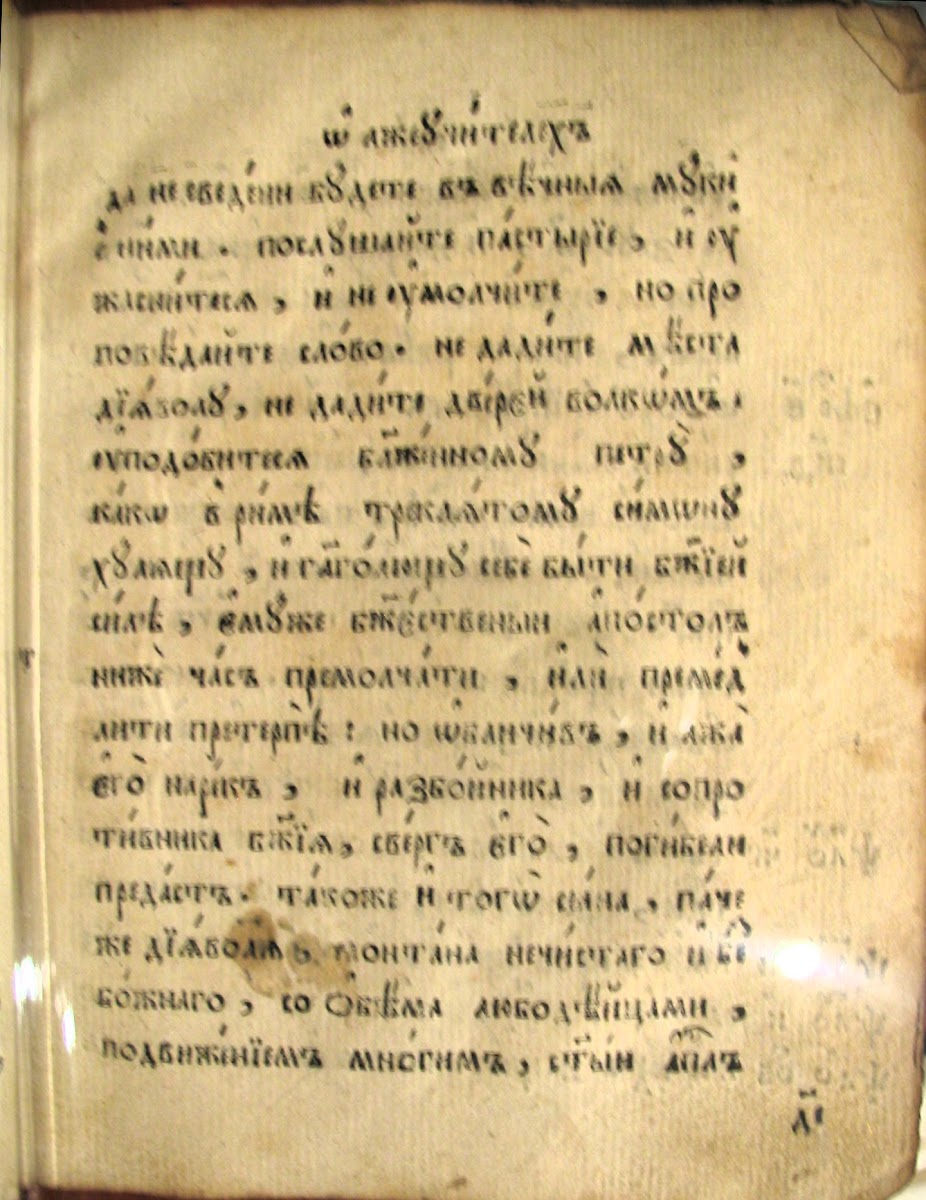 Ѡ҆ лжеꙋчи́телехъ
да не сведе́ни бꙋ́дете въ вѣ́чныя мꙋ́ки
с ни́ми . послꙋ́шайте па́стырїе , и҆ оу҆
жасни́теся , и҆ не оу҆молчи́те , но про
повѣ́дайте сло́во . не дади́те мѣ́ста
дїа́волꙋ , не дади́те две́рей волкѡ́мъ .
оу҆подо́битеся бл҃же́нномꙋ петрꙋ̀ ,
ка́кѡ в ри́мѣ трекля́томꙋ си́мѡнꙋ
хꙋ́лящꙋ , и҆ гл҃го́лющꙋ себѐ бы́ти бж҃їей
си́лѣ , є҆мꙋ́же бж҃е́ственыи а҆по́столъ
нижѐ ча́съ премолча́ти , и҆лѝ преме́д
лити претерпѣ̀ : но ѡ҆бличи́въ , и҆ лжа̀
є҆го̀ наре́къ , и҆ разбо́йника , и҆ сопро
ти́вника бж҃їя , све́ргъ є҆го̀ , поги́бели
преда́стъ . та́коже и҆ тогѡ̀ сы́на , па́че
же дїа́вола , монта́на нечи́стаго и҆ бе
бо́жнаго , со ѻ҆бѣ́ма любодѣ́йцами ,
подвиже́нїемъ мно́гимъ , ст҃ы́и а҆пⷭ҇лъ
д҃і